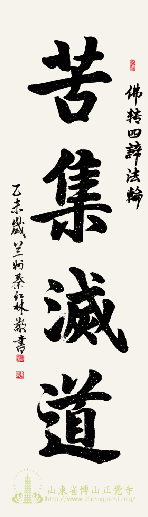 佛转四諦法輪
苦集滅道
乙未歲兰州秦红林敬書
山東省博山正覺寺